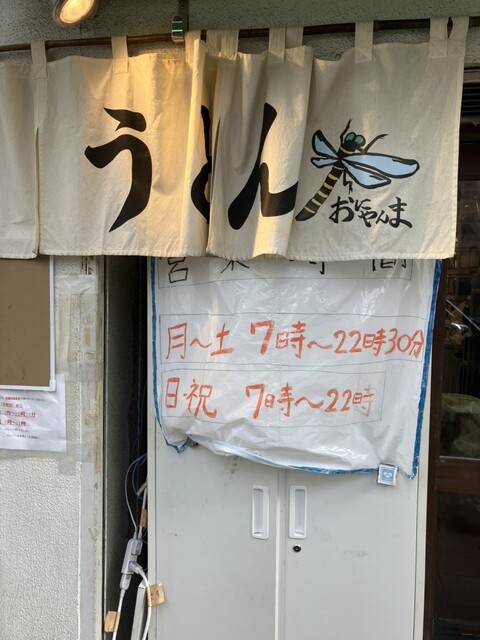 うどん
おにやんま
営業時間
月～土 7時～22時30分
日・祝 7時～22時